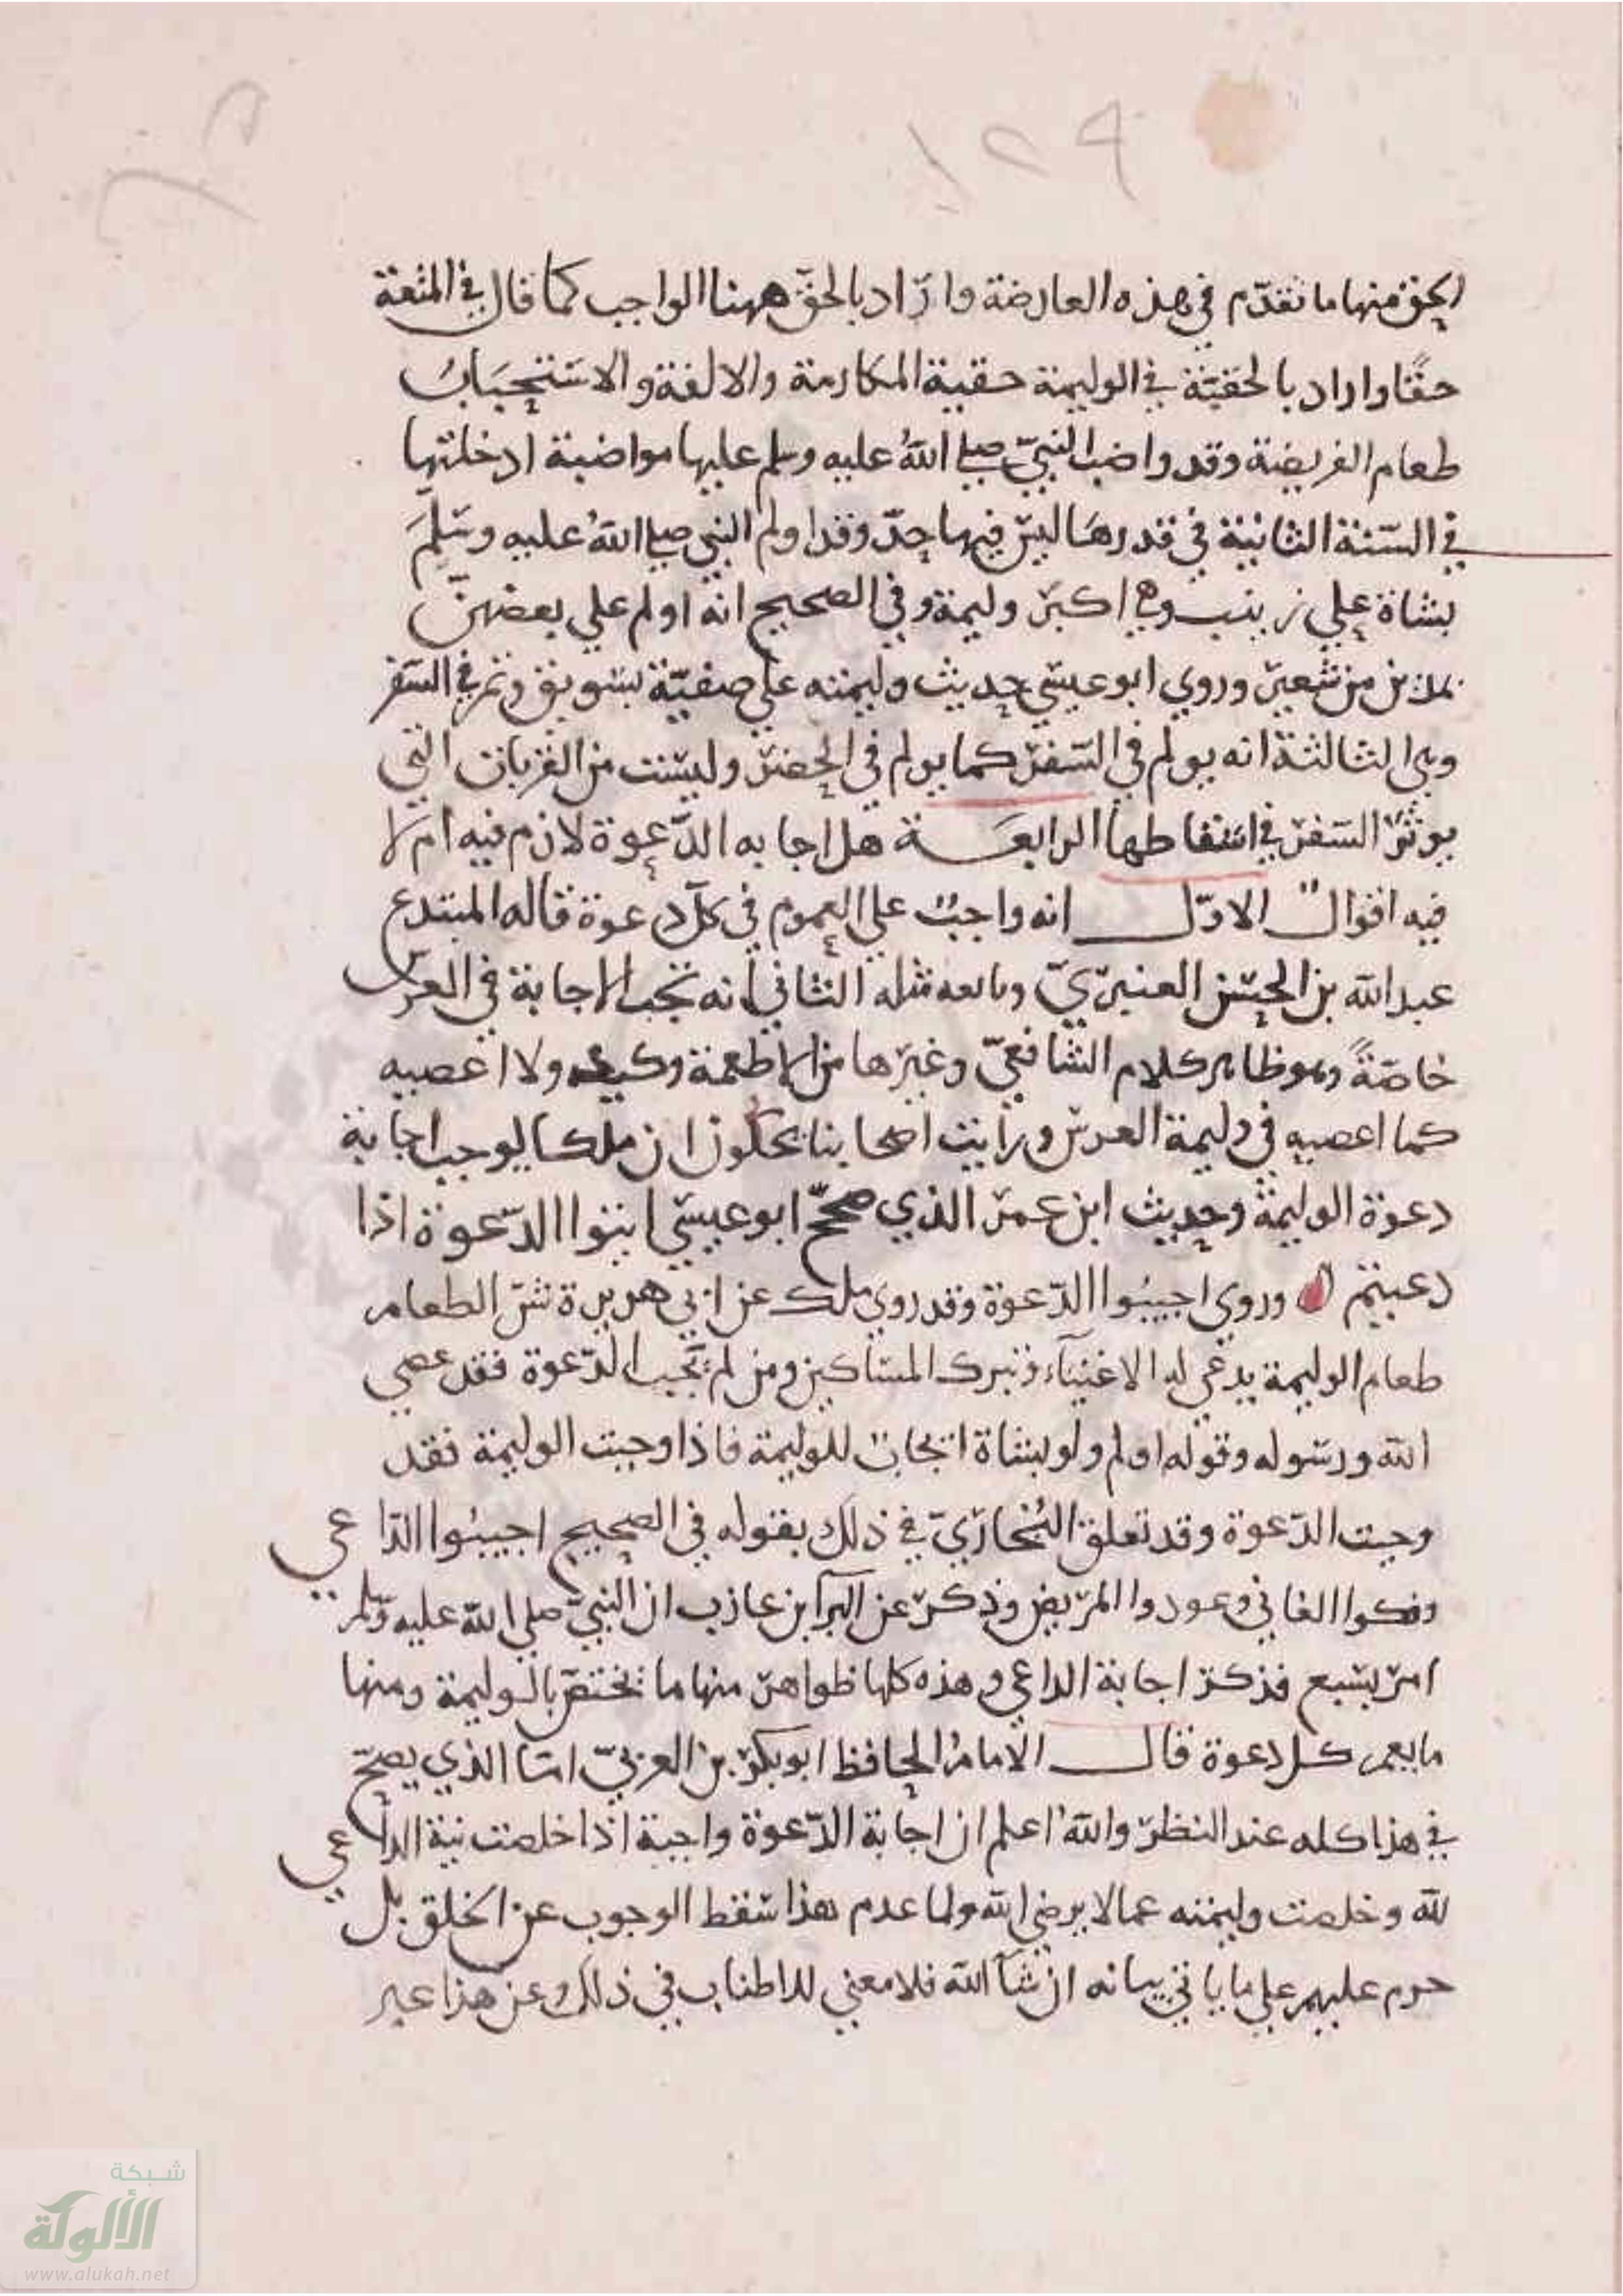 الحق منها ما تقدّم في هذه العارضة واراد بالحق ههنا الواجب كما قال في المتعة
حقًا واراد بالحقيّة في الوليمة حقية المكارمة والالفة والاستحباب
طعام الفريضة وقد واضب النبيّ صلي اللهُ عليه وسلم عليها مواضبة ادخلتها
في السّنة الثانية في قدرها ليس فيها حدّ وقد اولم النبي صلي اللهُ عليه وسَلمَ
بشاة علي زينب وهي اكبر وليمة وفي الصحيح انه اولم علي بعضهنّ
بمدين من شعير وروي ابو عيسي حديث وليمته علي صفيّة بسويق وتمر في السّفر
وهي الثالثة انه يولم في السّفر كما يولم في الحضر وليست من القربات التي
يوثر السّفر في اسقاطها الرابعَـة هل اجابه الدّعوة لازم فيه ام لا
فيه اقوال الاوّل انه واجبٌ علي العموم في كلّ دعوة قاله المبتدع
عبد الله بن الحسن العنبريّ وتابعه مثله الثاني انه تجب الاجابة في العرس
خاصّةً وهو ظاهر كلام الشافعيّ وغيرها من الاطعمة وكيعه ولا اعصيه
كما اعصيه في وليمة العرس ورايت اصحابنا يحكون ان ملكا يوجب اجابة
دعوة الوليمة وحديث ابن عمر الذي صححّ ابو عيسي ايتوا الدّعوة اذا
دعيتم وروي اجيبُوا الدّعوة وقد روي ملك عن ابي هريرة شرّ الطعام
طعام الوليمة يدعي له الاغنيآء وتبرك المساكين ومن لم يجب الدّعوة فقد عصي
الله ورسوله وقوله اولم ولو بشاة ايجاب للوليمة فاذا وجبت الوليمة فقد
وجبت الدّعوة وقد تعلق البُخاريّ في ذلك بقوله في الصحيح اجيبُوا الدّاعي
وفكوا العاني وعودوا المريض وذكر عن البرآ بن عازب ان النبيّ صلي الله عليه وسلم
امر بسبع فذكر اجابة الداعي وهذه كلها ظواهر منها ما يختص بالوليمة ومنها
ما يعم كل دعوة قال الامامُ الحافظ ابو بكر بن العربيّ امّا الذي يصحّ
في هذا كله عند النظر واللهُ اعلم ان اجابة الدّعوة واجبة اذا خلصت نية الداعي
لله وخلصت وليمته عما لا يرضي الله ولما عدم هذا سقط الوجوب عن الخلق بل
حرم عليهم علي ما ياتي بيانه ان شآ الله فلا معني للاطناب في ذلك وعن هذا عبر
شبكة
الألوكة
www.alukah.net